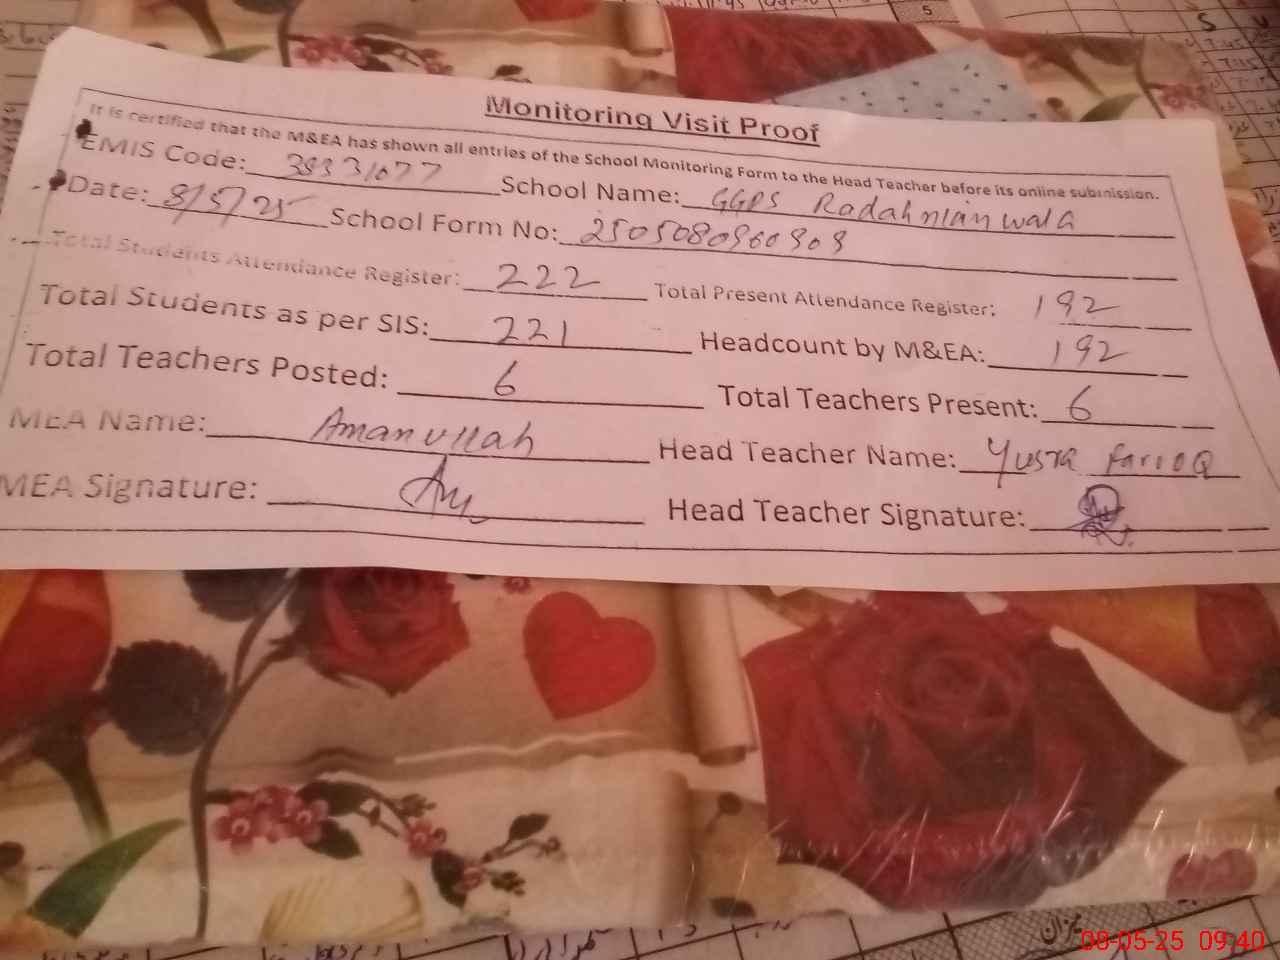 Monitoring Visit Proof
It is certified that the M&EA has shown all entries of the School Monitoring Form to the Head Teacher before its online submission.
EMIS Code: 38331077 School Name: GGPS Radahnianwala
Date: 8/5/25 School Form No: 2505080960908
Total Students Attendance Register: 222 Total Present Attendance Register: 192
Total Students as per SIS: 221 Headcount by M&EA: 192
Total Teachers Posted: 6 Total Teachers Present: 6
MEA Name: Amanullah Head Teacher Name: Yusra Farooq
MEA Signature: Head Teacher Signature:
میزان
08-05-25 09:40